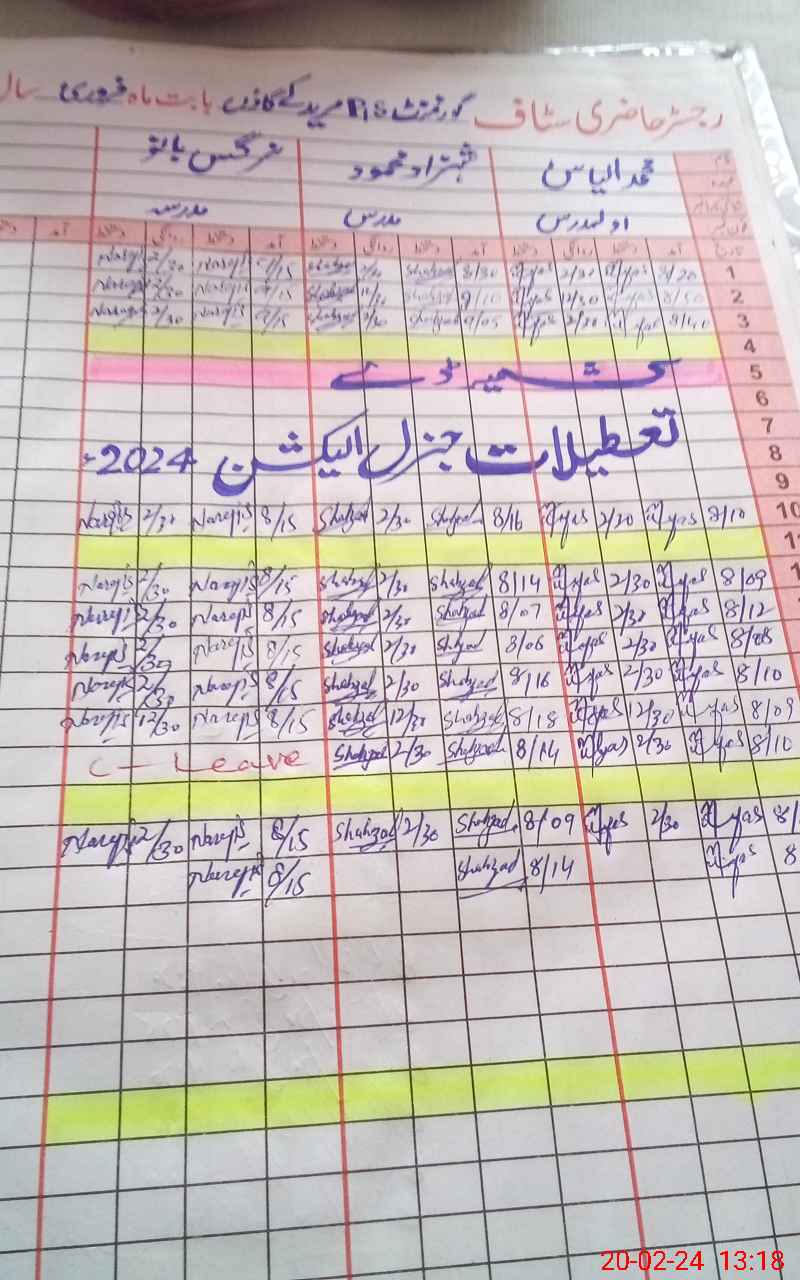 رجسٹر حاضری سٹاف گورنمنٹ P/S مریدکے گاؤں بابت ماہ فروری سال
محمد الیاس شہزاد محمود نرگس بانو
مدرس مدرسہ
آمد دستخط روانگی دستخط آمد دستخط روانگی دستخط آمد دستخط روانگی دستخط آمد
1 8/20 Ilyas 2/30 Ilyas 8/30 Shahzad 2/30 Shahzad 9/15 Nargis 2/30 Nargis
2 8/50 Ilyas 12/30 Ilyas 9/10 Shahzad 12/30 Shahzad 9/15 Nargis 2/30 Nargis
3 8/40 Ilyas 2/30 Ilyas 9/05 Shahzad 2/30 Shahzad 9/15 Nargis 2/30 Nargis
4
5 کشمیر ڈے
6
7
8 تعطیلات جنرل الیکشن 2024ء
9
10 8/10 Ilyas 2/30 Ilyas 8/16 Shahzad 2/30 Shahzad 8/15 Nargis 2/30 Nargis
8/09 Ilyas 2/30 Ilyas 8/14 Shahzad 2/30 Shahzad 8/15 Nargis 2/30 Nargis
8/12 Ilyas 2/30 Ilyas 8/07 Shahzad 2/30 Shahzad 8/15 Nargis 2/30 Nargis
8/08 Ilyas 2/30 Ilyas 8/06 Shahzad 2/30 Shahzad 8/15 Nargis 2/30 Nargis
8/10 Ilyas 2/30 Ilyas 8/16 Shahzad 2/30 Shahzad 8/15 Nargis 2/30 Nargis
8/09 Ilyas 12/30 Ilyas 8/18 Shahzad 12/30 Shahzad 8/15 Nargis 12/30 Nargis
8/10 Ilyas 2/30 Ilyas 8/14 Shahzad 2/30 Shahzad C - Leave
Ilyas 2/30 Ilyas 8/09 Shahzad 2/30 Shahzad 8/15 Nargis 2/30 Nargis
Ilyas 8/14 Shahzad 8/15 Nargis
20-02-24 13:18